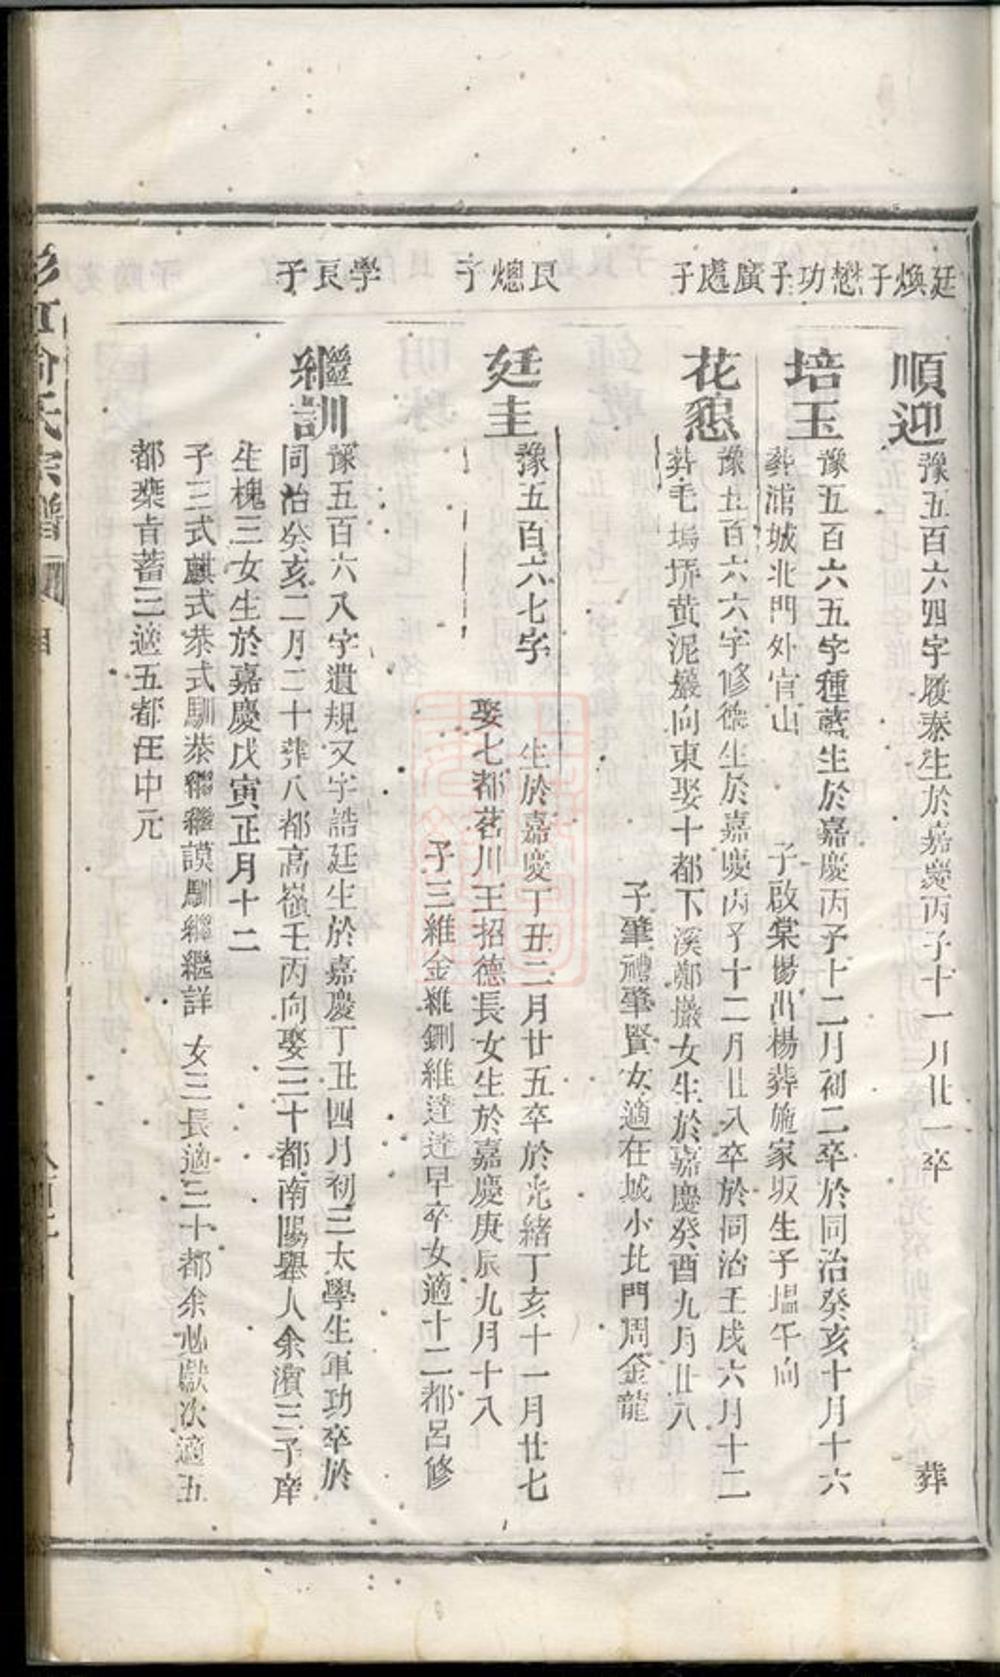 廷煥子
順迎
豫五百六四字履泰生於嘉慶丙子十一月廿一卒 葬
懋功子
培玉
豫五百六五字種藍生於嘉慶丙子十二月初二卒於同治癸亥十月十六
葬浦城北門外官山 子啟棠 楊出楊葬施家坂生子塭午向
廣處子
花憩
豫五百六六字修德生於嘉慶丙子十二月廿八卒於同治壬戌六月十二
葬毛塢垿黄泥巖向東娶十都下溪鄭巖女生於嘉慶癸酉九月廿八
子肇禮肇賢女適在城小北門周金龍
良熜子
廷圭
豫五百六七字 生於嘉慶丁丑二月廿五卒於光緒丁亥十一月廿七
娶七都茗川王招德長女生於嘉慶庚辰九月十八
子三維金維鉶維達達早卒女適十二都呂修
學良子
繼訓
豫五百六八字遺規又字誥廷生於嘉慶丁丑四月初三太學生軍功卒於
同治癸亥二月二十葬八都高嶺壬丙向娶三十都南陽舉人余濱三子庠
生槐三女生於嘉慶戊寅正月十二
子三式麒式恭式馴恭繼繼謨馴繼繼詳 女三長適三十都余必猷次適五
都葉肯蓄三適五都汪中元
氏宗譜